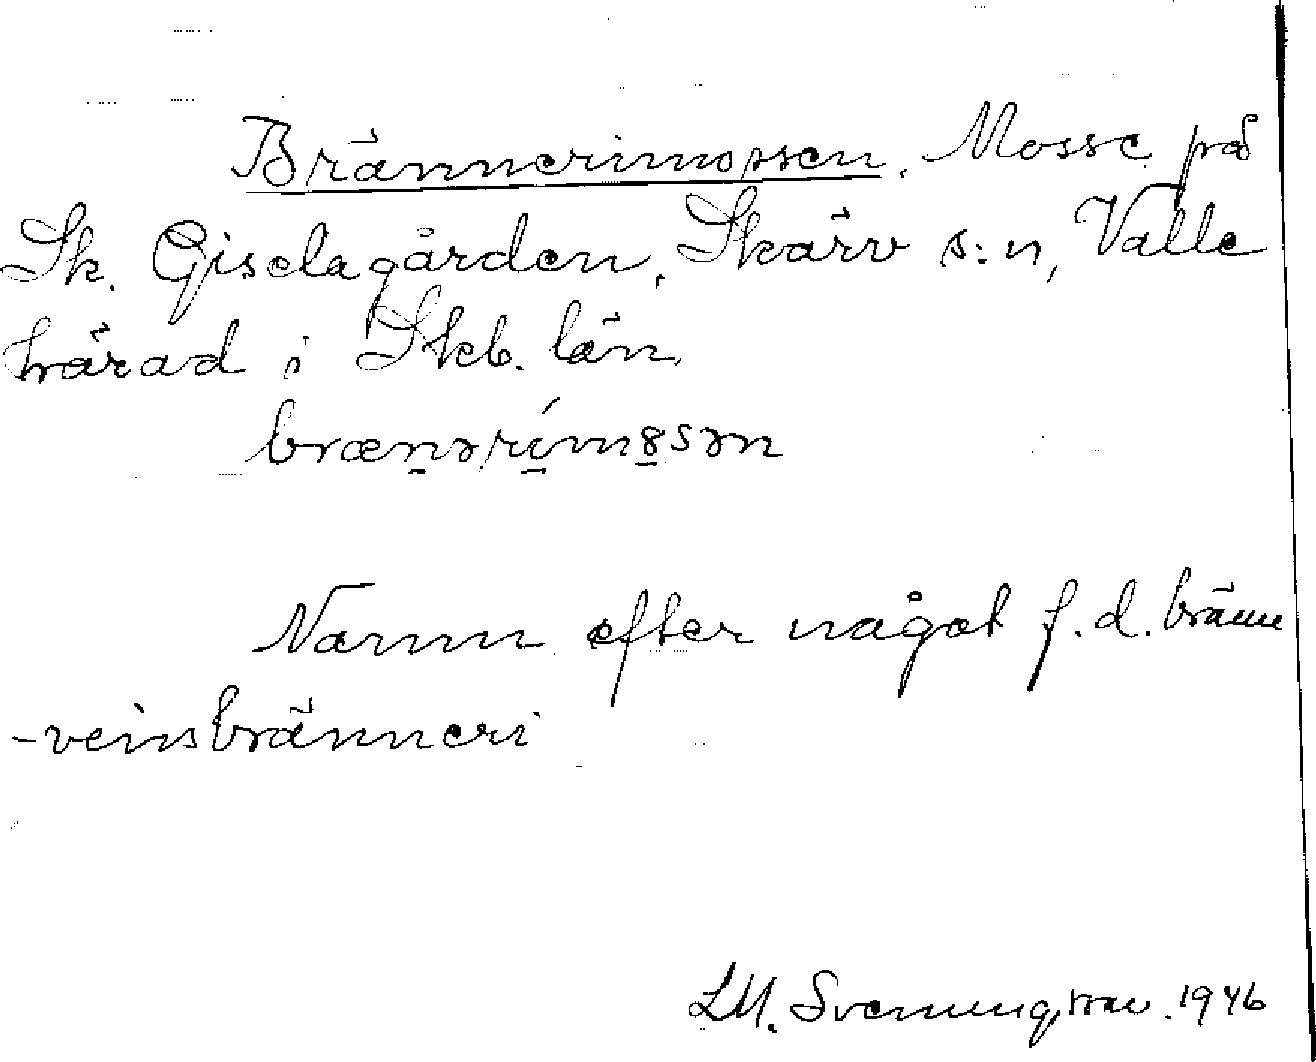 Brännerimossen. Mosse på
Sk. Giselagården, Skärv s:n, Valle
härad i Skb. län.
brænərím8sən
Namn efter något f.d. bränn
-veinsbränneri
LM. Svenungsson. 1946